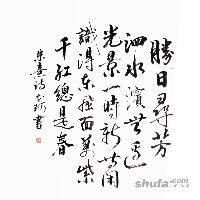 勝日尋芳
泗水濱無邊
光景一時新等閒
識得東風面萬紫
千紅總是春
朱熹詩 書
shufa.com